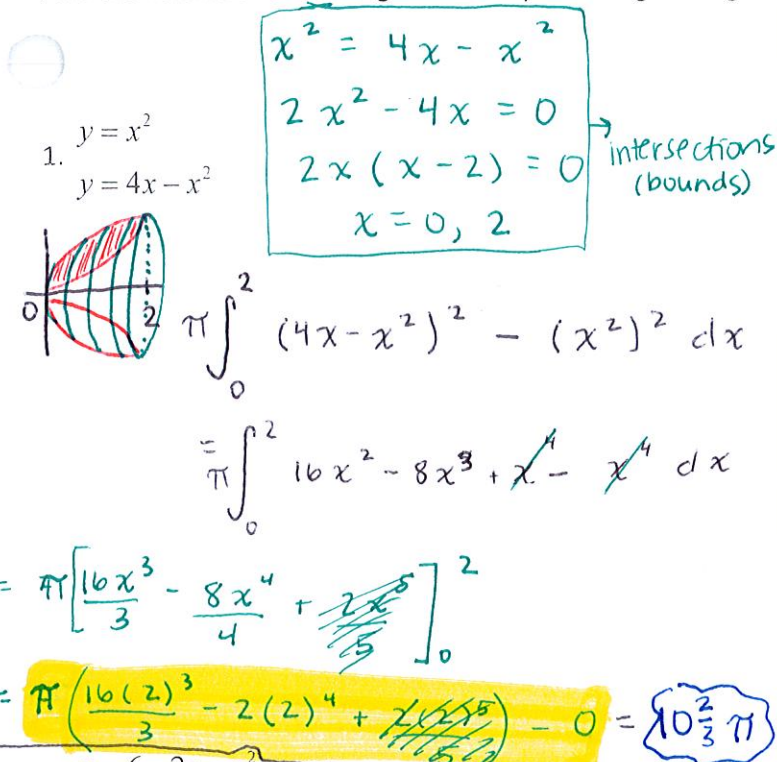 x² = 4x - x²
2x² - 4x = 0
2x(x - 2) = 0
x = 0, 2
→ intersections
(bounds)
1. y = x²
y = 4x - x²
0 2
π∫₀² (4x - x²)² - (x²)² dx
= π∫₀² 16x² - 8x³ + x⁴ - x⁴ dx
= π[16x³/3 - 8x⁴/4 + 2x⁵/5]₀²
= π(16(2)³/3 - 2(2)⁴ + 2(2)⁵/5) - 0 = 10 2/3 π